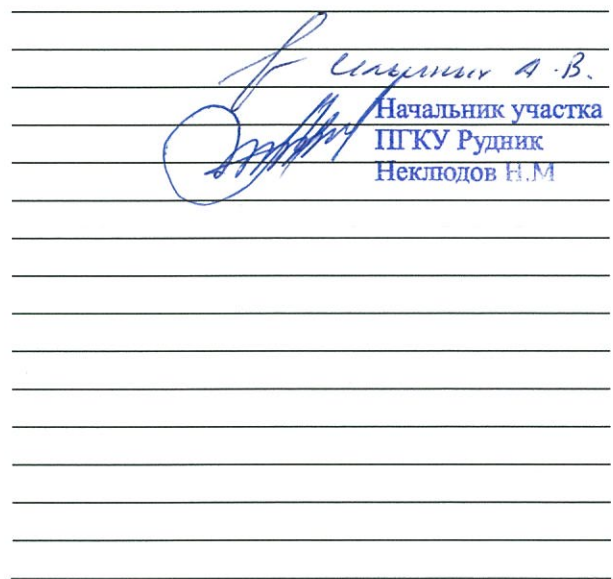 А.В.
Начальник участка
ПГКУ Рудник
Неклюдов Н.М